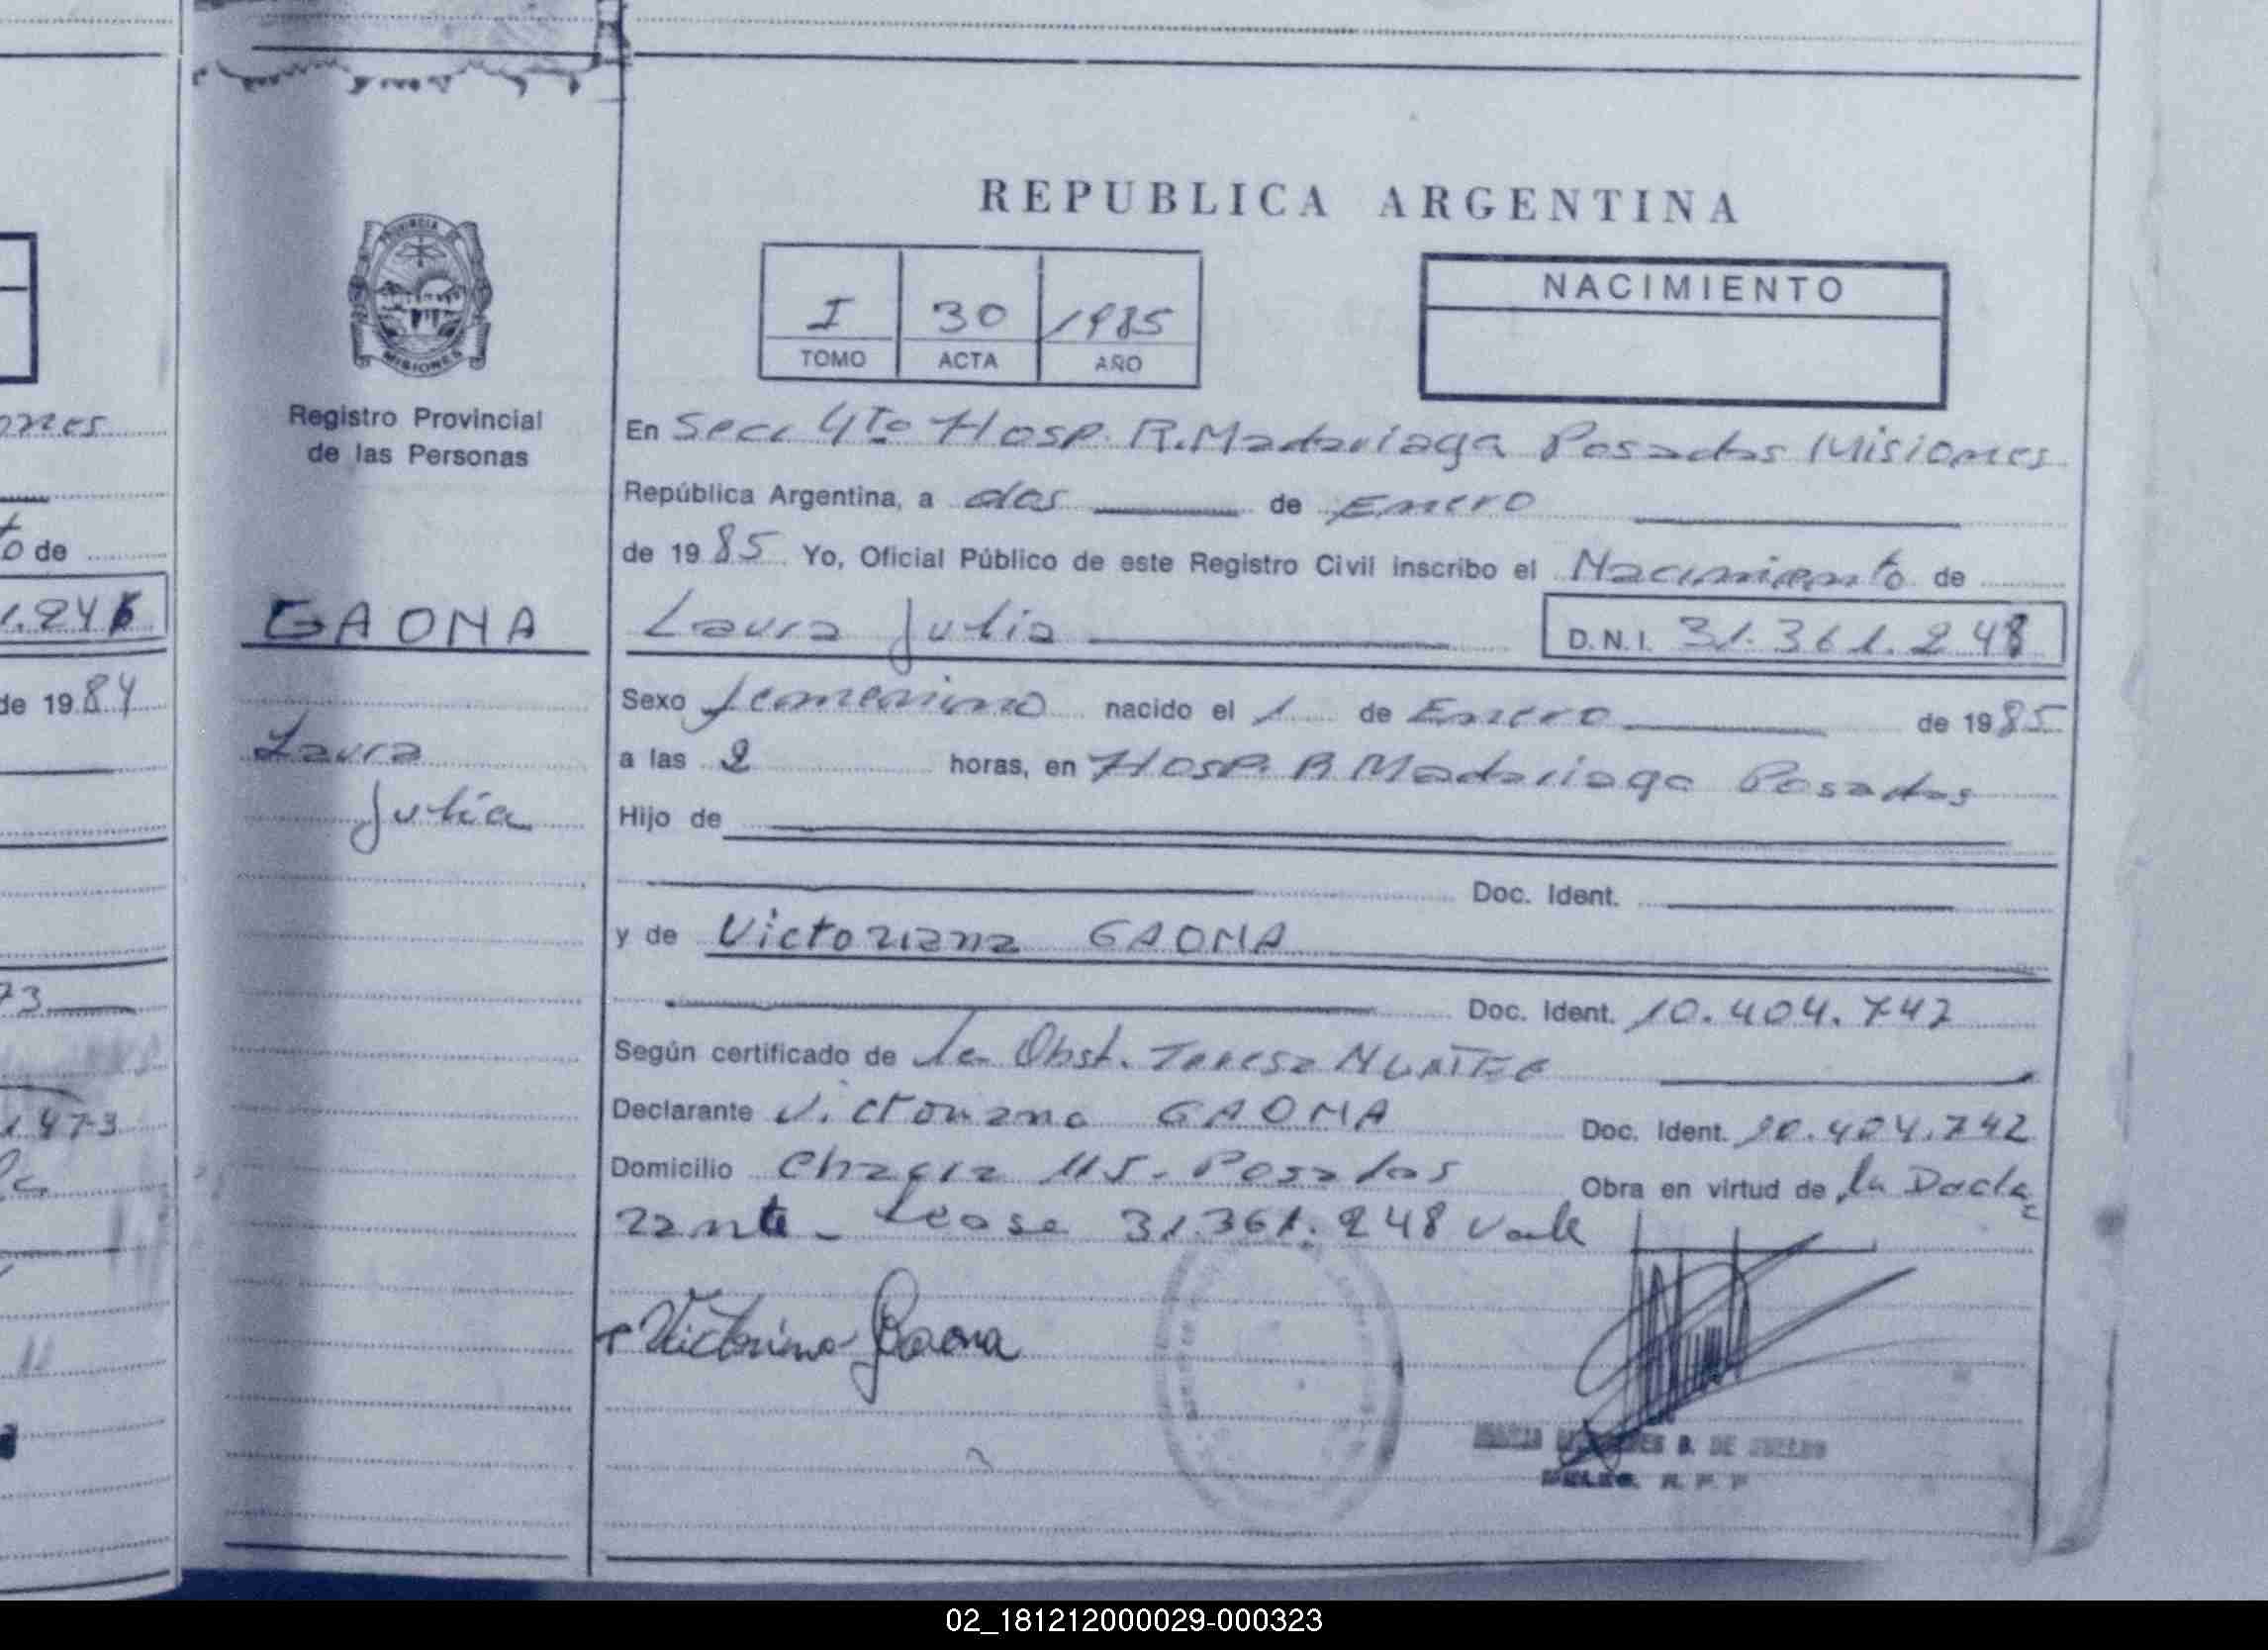 REPUBLICA ARGENTINA
PROVINCIA DE
MISIONES
Registro Provincial
de las Personas
I 30 1985
TOMO ACTA AÑO
NACIMIENTO
En Secc 4to Hosp. R. Madariaga Posadas Misiones
República Argentina, a dos de Enero
de 1985 Yo, Oficial Público de este Registro Civil inscribo el Nacimiento de
GAONA
Laura Julia D.N.I. 31.361.248
Sexo femenino nacido el 1 de Enero de 1985
Laura
Julia
a las 2 horas, en Hosp. R Madariaga Posadas
Hijo de
Doc. Ident.
y de Victoriana GAONA
Doc. Ident. 10.404.742
Según certificado de la Obst. Teresa
Declarante Victoriana GAONA Doc. Ident. 10.404.742
Domicilio Chacra 115. Posadas Obra en virtud de la Decla
rante - Lease 31.361.248 Vale
Victorina Gaona
B. DE
R. P. P
ones
to de
1.246
de 1984
73
1.473
02_181212000029-000323